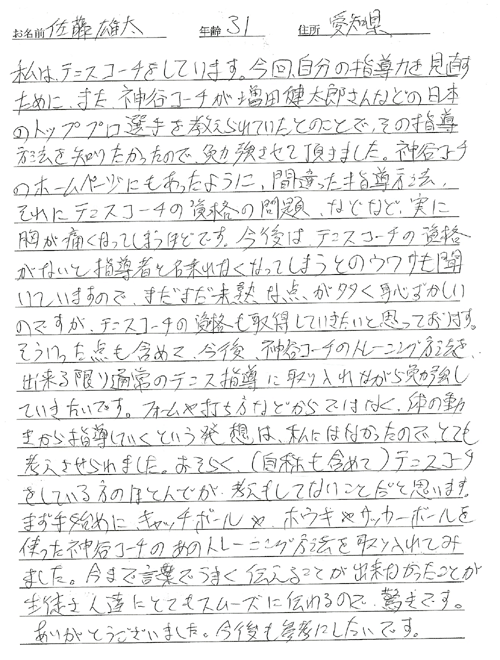 お名前 佐藤 雄太 年齢 31 住所 愛知県
私は、テニスコーチをしています。今回、自分の指導力を見直す
ために、また、神谷コーチが増田健太郎さんなどの日本
のトッププロ選手を教えられていたとのことで、その指導
方法を知りたかったので、勉強させて頂きました。神谷コーチ
のホームページにもあったように、間違った指導方法、
それにテニスコーチの資格の問題、などなど、実に
胸が痛くなってしまうほどです。今後は、テニスコーチの資格
がないと指導者と名乗れなくなってしまうとのウワサも聞
いていますので、まだまだ未熟な点が多く恥ずかしい
のですが、テニスコーチの資格も取得していきたいと思っております。
そういった点も含めて、今後、神谷コーチのトレーニング方法を、
出来る限り通常のテニス指導に取り入れながら勉強して
いきたいです。フォームや打ち方などからではなく、体の動
きから指導していくという発想は、私にはなかったので、とても
考えさせられました。おそらく、(自称も含めて)テニスコーチ
をしている方のほとんどが、考えもしてないことだと思います。
まず手始めに、キャッチボールや、ホウキやサッカーボールを
使った神谷コーチのあのトレーニング方法を取り入れてみ
ました。今まで言葉でうまく伝えることが出来なかったことが
生徒さん達にとてもスムーズに伝わるので、驚きです。
ありがとうございました。今後も参考にしたいです。